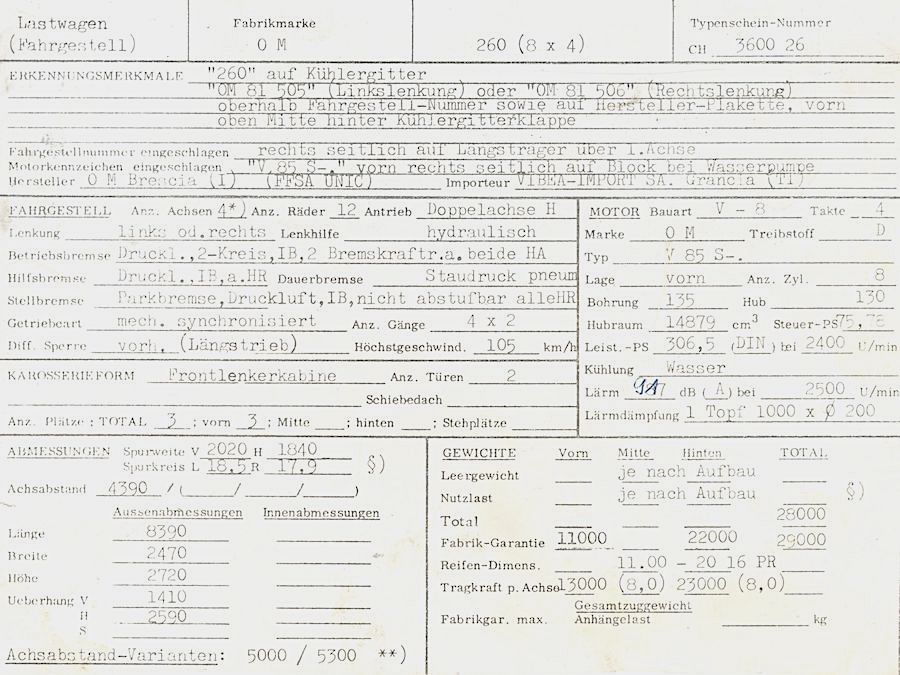 Lastwagen Fabrikmarke Typenschein-Nummer
(Fahrgestell) O M 260 (8 x 4) CH 3600 26
ERKENNUNGSMERKMALE "260" auf Kühlergitter
"OM 81 505" (Linkslenkung) oder "OM 81 506" (Rechtslenkung)
oberhalb Fahrgestell-Nummer sowie auf Hersteller-Plakette, vorn
oben Mitte hinter Kühlergitterklappe
Fahrgestellnummer eingeschlagen rechts seitlich auf Längsträger über 1.Achse
Motorkennzeichen eingeschlagen "V 85 S-." vorn rechts seitlich auf Block bei Wasserpumpe
Hersteller O M Brescia (I) (FFSA UNIC) Importeur VIBEA-IMPORT SA. Grancia (TI)
FAHRGESTELL Anz. Achsen 4*) Anz. Räder 12 Antrieb Doppelachse H
Lenkung links od.rechts Lenkhilfe hydraulisch
Betriebsbremse Druckl.,2-Kreis,IB,2 Bremskraftr.a.beide HA
Hilfsbremse Druckl.,IB,a.HR Dauerbremse Staudruck pneum
Stellbremse Parkbremse,Druckluft,IB,nicht abstufbar alleHR
Getriebeart mech. synchronisiert Anz. Gänge 4 x 2
Diff. Sperre vorh. (Längstrieb) Höchstgeschwind. 105 km/h
MOTOR Bauart V - 8 Takte 4
Marke O M Treibstoff D
Typ V 85 S-.
Lage vorn Anz. Zyl. 8
Bohrung 135 Hub 130
Hubraum 14879 cm³ Steuer-PS 75,78
Leist.-PS 306,5 (DIN) bei 2400 U/min
Kühlung Wasser
Lärm dB (A) bei 2500 U/min
Lärmdämpfung 1 Topf 1000 x Ø 200
KAROSSERIEFORM Frontlenkerkabine Anz. Türen 2
Schiebedach
Anz. Plätze : TOTAL 3 ; vorn 3 ; Mitte ; hinten ; Stehplätze
ABMESSUNGEN Spurweite V 2020 H 1840
Spurkreis L 18,5 R 17,9 §)
Achsabstand 4390 / ( / / )
Aussenabmessungen Innenabmessungen
Länge 8390
Breite 2470
Höhe 2720
Ueberhang V 1410
H 2590
S
Achsabstand-Varianten: 5000 / 5300 **)
GEWICHTE Vorn Mitte Hinten TOTAL
Leergewicht je nach Aufbau
Nutzlast je nach Aufbau §)
Total 28000
Fabrik-Garantie 11000 22000 29000
Reifen-Dimens. 11.00 - 20 16 PR
Tragkraft p. Achse 13000 (8,0) 23000 (8,0)
Gesamtzuggewicht
Fabrikgar. max. Anhängelast kg